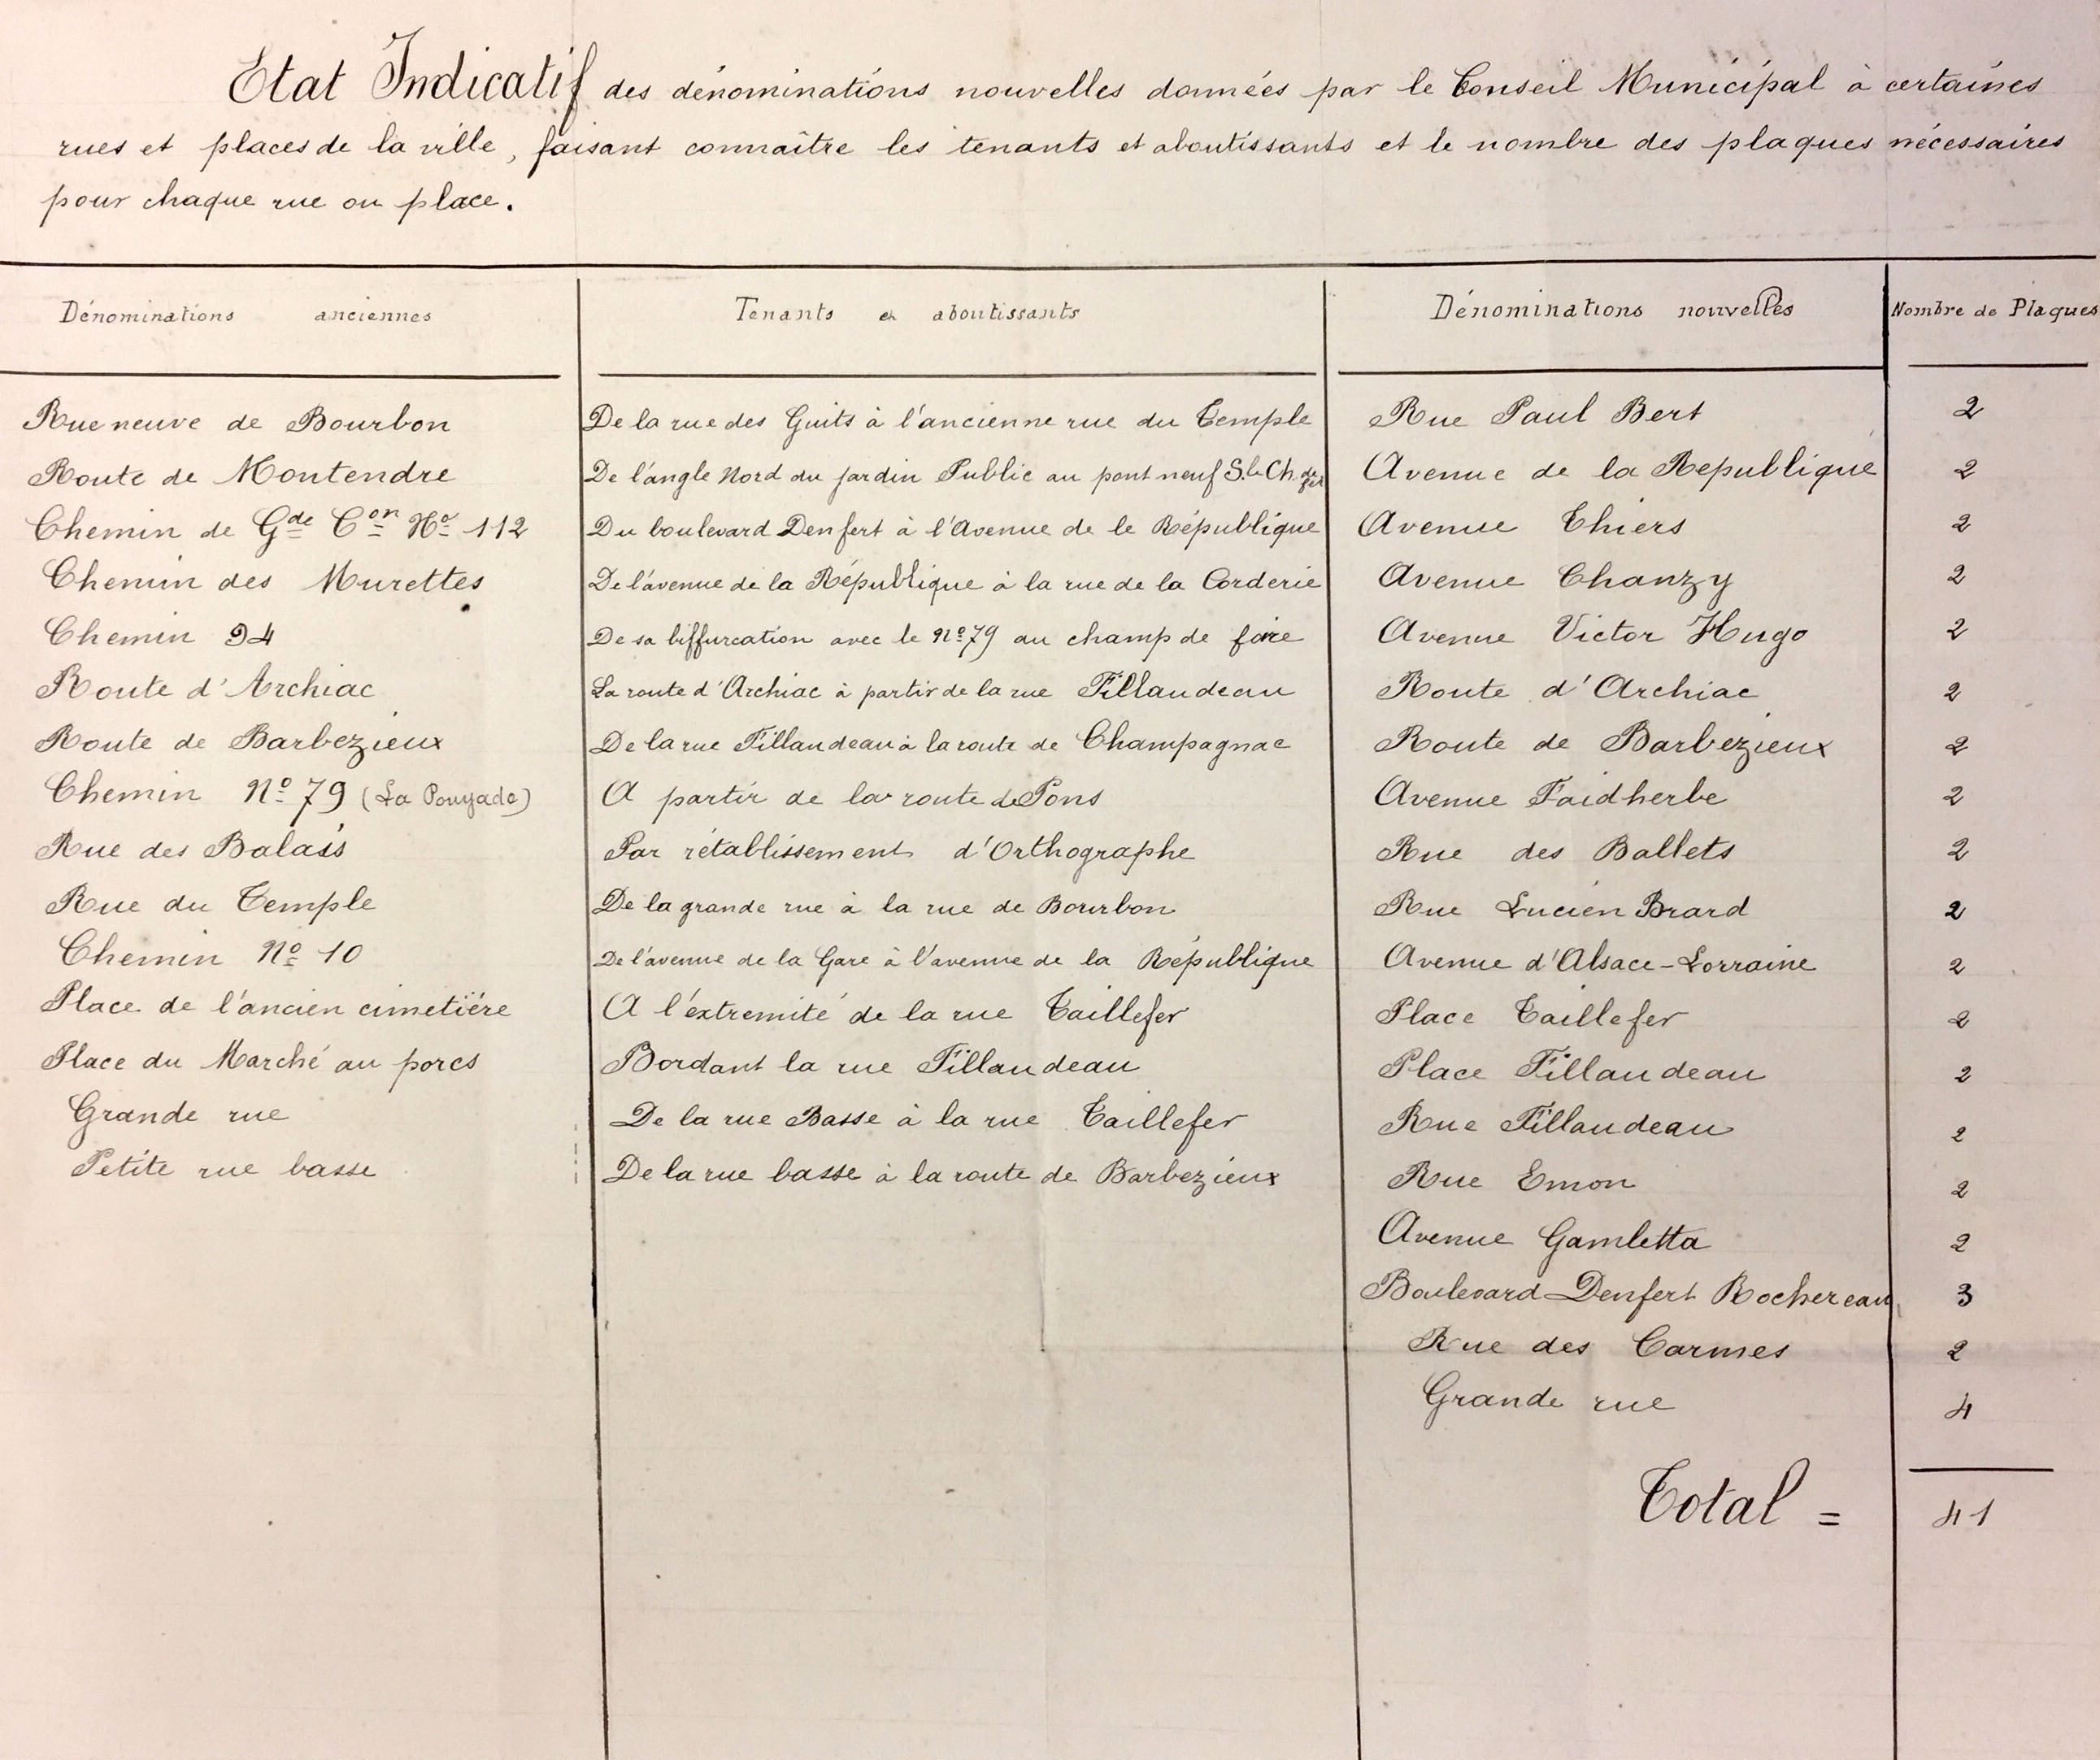 Etat Indicatif des dénominations nouvelles données par le Conseil Municipal à certaines
rues et places de la ville, faisant connaître les tenants et aboutissants et le nombre des plaques nécessaires
pour chaque rue ou place.
Dénominations anciennes Tenants et aboutissants Dénominations nouvelles Nombre de Plaques
Rue neuve de Bourbon De la rue des Guits à l'ancienne rue du Temple Rue Paul Bert 2
Route de Montendre De l'angle Nord du jardin Public au pont neuf S. le Ch. de fer Avenue de la Republique 2
Chemin de Gde Con No 112 Du boulevard Denfert à l'Avenue de le République Avenue Thiers 2
Chemin des Murettes De l'avenue de la République à la rue de la Corderie Avenue Chanzy 2
Chemin 94 De sa biffurcation avec le No 79 au champ de foire Avenue Victor Hugo 2
Route d'Archiac La route d'Archiac à partir de la rue Fillaudeau Route d'Archiac 2
Route de Barbezieux De la rue Fillaudeau à la route de Champagnac Route de Barbezieux 2
Chemin No 79 (La Pouyade) A partir de la route de Pons Avenue Faidherbe 2
Rue des Balais Par rétablissement d'Orthographe Rue des Ballets 2
Rue du Temple De la grande rue à la rue de Bourbon Rue Lucien Brard 2
Chemin No 10 De l'avenue de la Gare à l'avenue de la République Avenue d'Alsace-Lorraine 2
Place de l'ancien cimetière A l'éxtremité de la rue Taillefer Place Taillefer 2
Place du Marché au porcs Bordant la rue Fillaudeau Place Fillaudeau 2
Grande rue De la rue Basse à la rue Taillefer Rue Fillaudeau 2
Petite rue basse De la rue basse à la route de Barbezieux Rue Emon 2
Avenue Gambetta 2
Boulevard Denfert Rochereau 3
Rue des Carmes 2
Grande rue 4
Total = 41